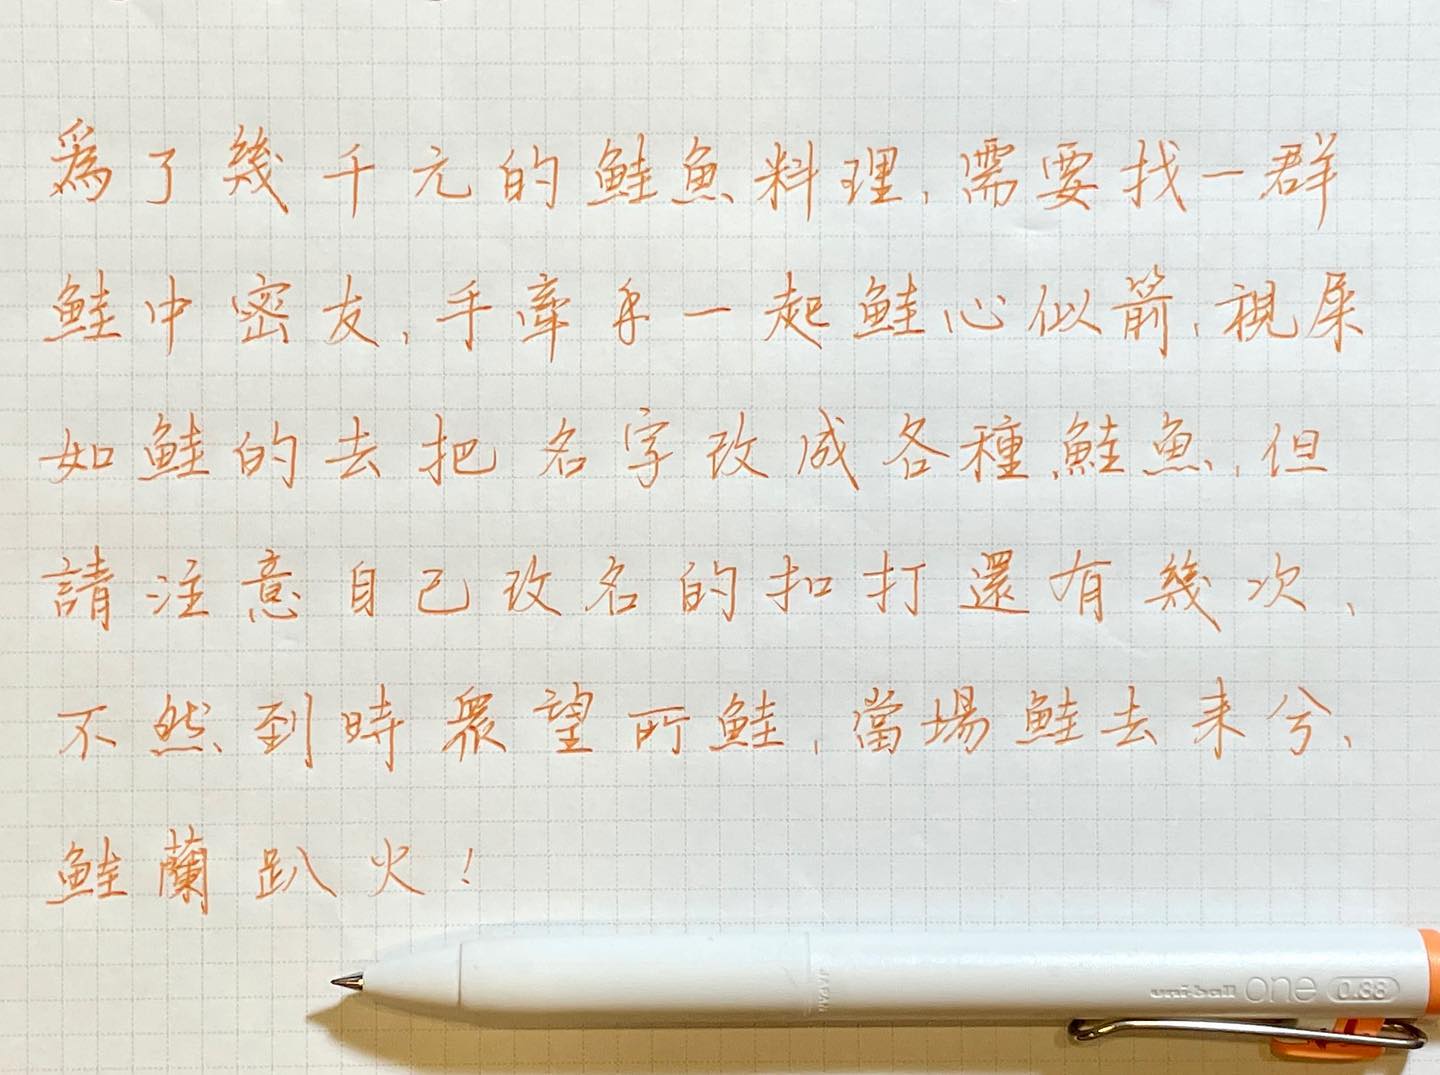 為了幾千元的鮭魚料理，需要找一群
鮭中密友，手牽手一起鮭心似箭，視屎
如鮭的去把名字改成各種鮭魚，但
請注意自己改名的扣打還有幾次、
不然到時眾望所鮭，當場鮭去來兮、
鮭蘭趴火！
JAPAN
uni-ball one 0.38